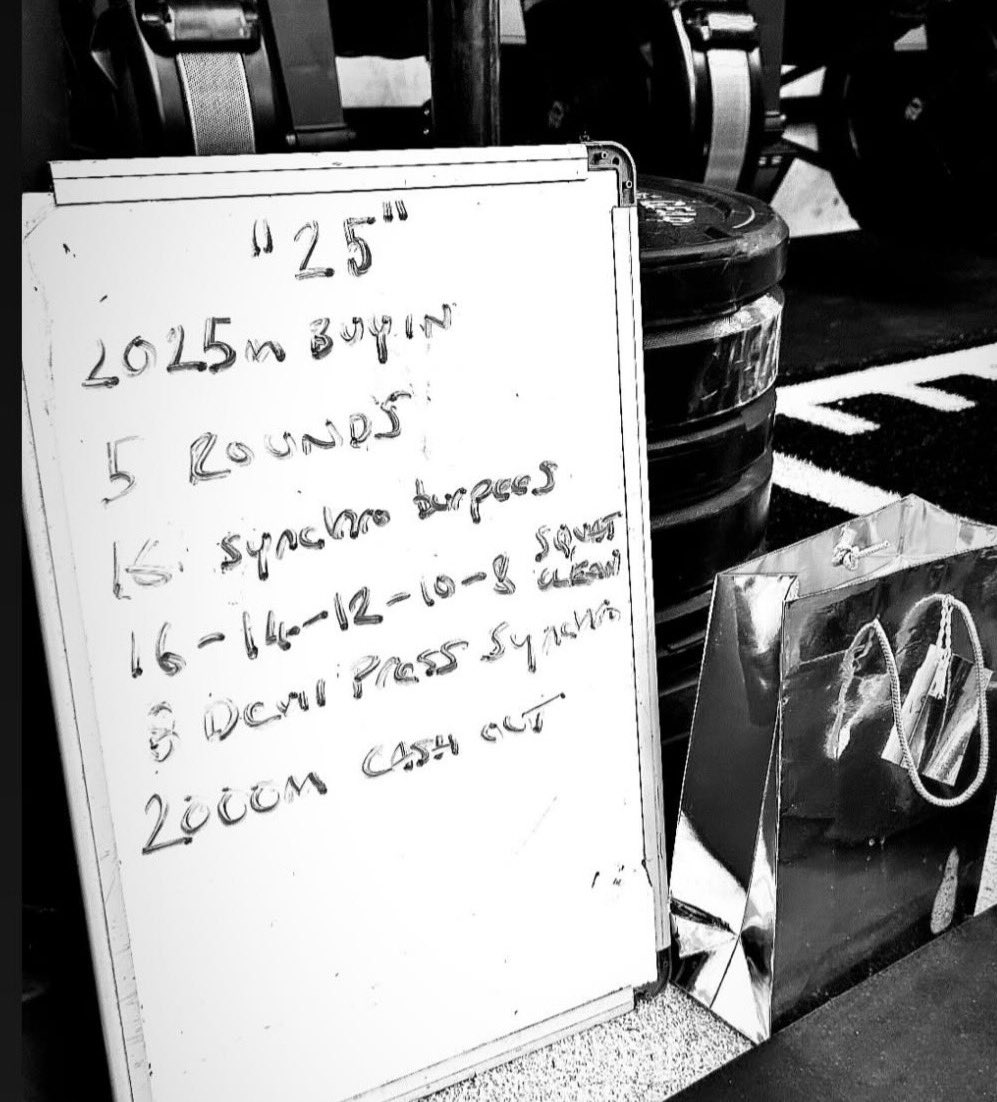 "25"
2025m BUY IN
5 ROUNDS
16 synchro burpees
16-14-12-10-8 SQUAT CLEAN
8 Devil Press Synchro
2000m CASH OUT